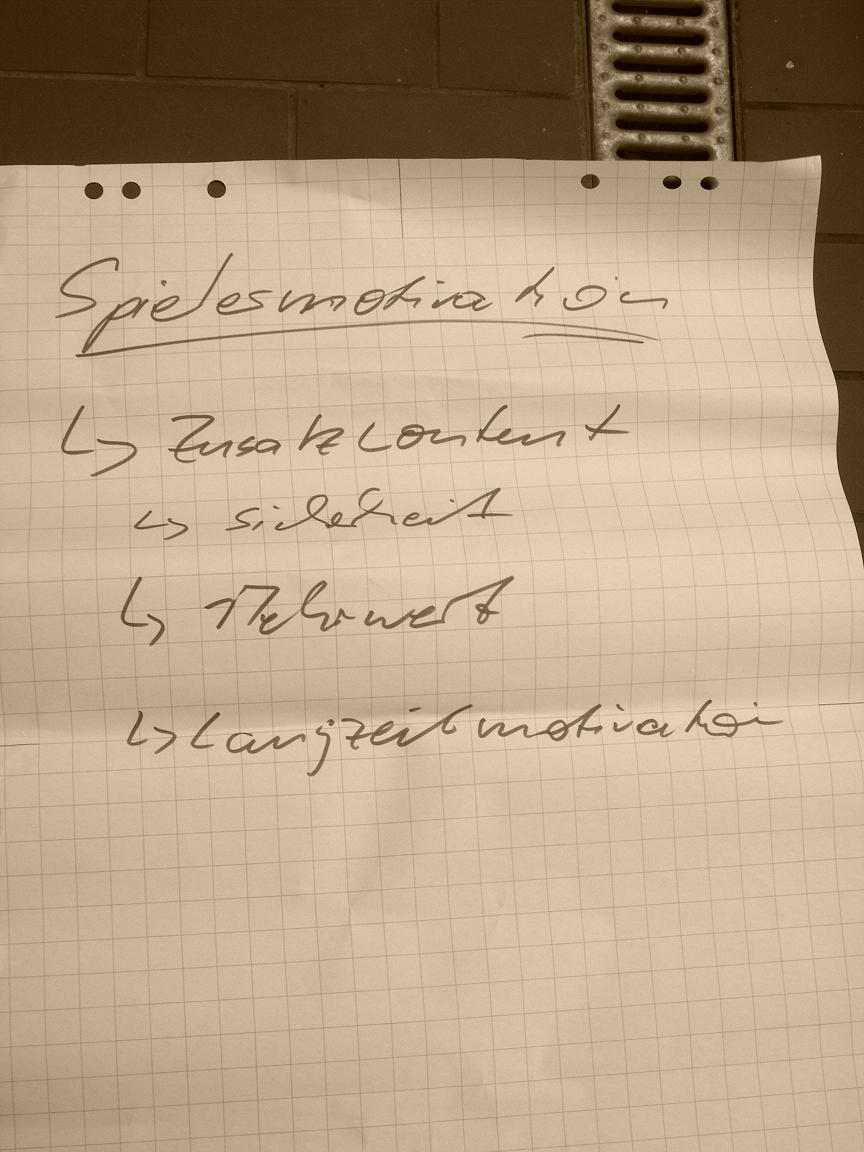 Spielesmotivation
↳ Zusatzcontent
↳ sicherheit
↳ Mehrwert
↳ Langzeitmotivation